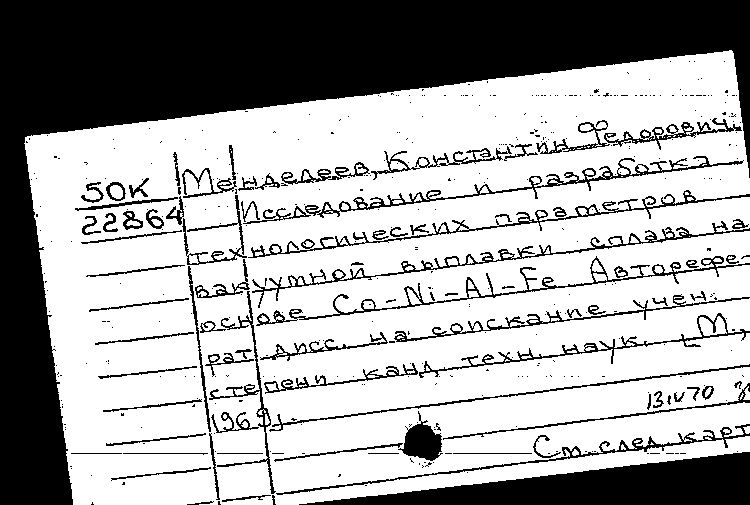 50К Менделеев, Константин Федорович.
22864 Исследование и разработка
технологических параметров
вакуумной выплавки сплава на
основе Co-Ni-Al-Fe Авторефе-
рат дисс. на соискание учен.
степени канд. техн. наук. [М.,
1969].
13 IV 70
См. след. карт